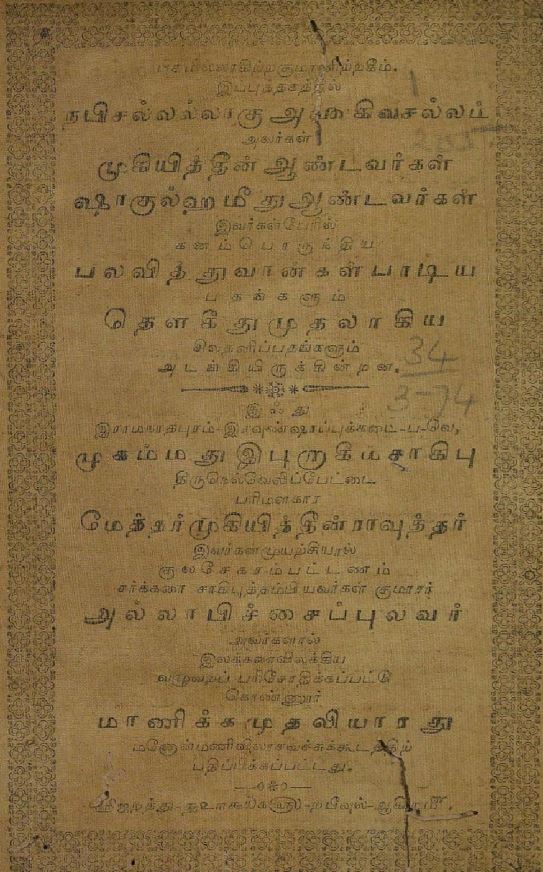 இப்புத்தகத்தில்
நபிசல்லல்லாகு அலைகிவசல்லம்
அவர்கள்
முகியித்தீன் ஆண்டவர்கள்
ஷாகுல்ஹமீது ஆண்டவர்கள்
இவர்கள்பேரில்
கனம்பொருந்திய
பலவித்துவான்கள்பாடிய
பதங்களும்
தௌகீதுமுதலாகிய
சிலதனிப்பதங்களும்
அடங்கியிருக்கின்றன.
34
3-74
இஃது
இராமநாதபுரம்-இரவுண்ஷாப்புக்கடை-ப-லெ,
முகம்மதுஇபுறாகீம்சாகிபு
திருநெல்வேலிப்பேட்டை
பரிமளகார
மேத்தர்முகியித்தீன்ராவுத்தர்
இவர்கள்முயற்சியால்
குலசேகரம்பட்டணம்
சர்க்கரை சாகிபுத்தம்பியவர்கள் குமாரர்
அல்லாபிச்சைப்புலவர்
அவர்களால்
இலக்கணவிலக்கிய
வழுவறப் பரிசோதிக்கப்பட்டு
கொண்ணூர்
மாணிக்கமுதலியாரது
மனோன்மணிவிலாசவச்சுக்கூடத்திற்
பதிப்பிக்கப்பட்டது.